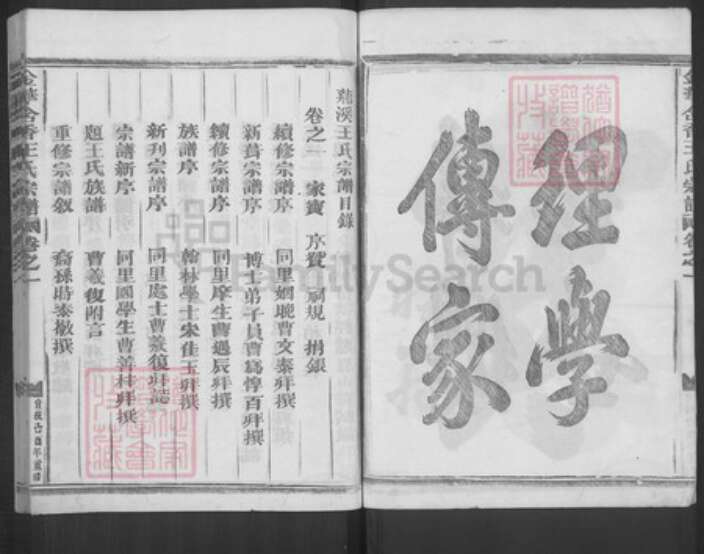 經學
傳家
王氏宗譜目錄
卷之一 家寶 序贊 祠規 捐銀
續修宗譜序 同里姻晚曹文泰拜撰
新葺宗譜序 博士弟子員曹爲惇百拜撰
續修宗譜序 同里庠生曹遇辰拜撰
族譜序 翰林學士宋佳玉拜撰
新刊宗譜序 同里處士曹羲復拜誌
宗譜新序 同里國學生曹善林拜撰
題王氏族譜 曹羲復附言
重修宗譜敘 裔孫時泰敬撰
金華含香王氏宗譜 卷之一
FamilySearch